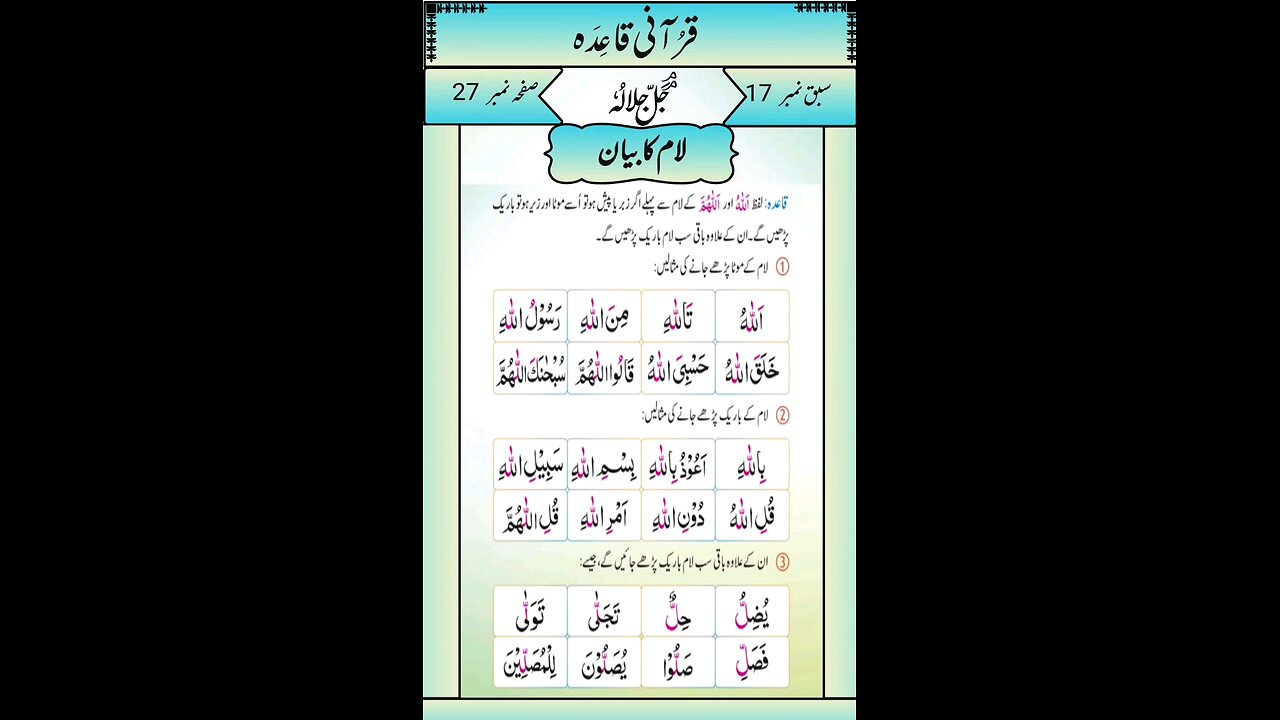 قرآنی قاعِدَہ
سبق نمبر 17
جَلَّ جلالہٗ
صفحہ نمبر 27
لام کا بیان
قاعدہ: لفظ اَللّٰہُ اور اَللّٰھُمَّ کے لام سے پہلے اگر زبر یا پیش ہو تو اُسے موٹا اور زیر ہو تو باریک
پڑھیں گے۔ ان کے علاوہ باقی سب لام باریک پڑھیں گے۔
① لام کے موٹا پڑھے جانے کی مثالیں:
اَللّٰهُ تَاللّٰهِ مِنَ اللّٰهِ رَسُوْلُ اللّٰهِ
خَلَقَ اللّٰهُ حَسْبِیَ اللّٰهُ قَالُوا اللّٰهُمَّ سُبْحٰنَكَ اللّٰهُمَّ
② لام کے باریک پڑھے جانے کی مثالیں:
بِاللّٰهِ اَعُوْذُ بِاللّٰهِ بِسْمِ اللّٰهِ سَبِیْلِ اللّٰهِ
قُلِ اللّٰهُ دُوْنِ اللّٰهِ اَمْرِ اللّٰهِ قُلِ اللّٰهُمَّ
③ ان کے علاوہ باقی سب لام باریک پڑھے جائیں گے، جیسے:
یُضِلُّ حِلٌّ تَجَلّٰی تَوَلّٰی
فَصَلِّ صَلُّوْا یُصَلُّوْنَ لِلْمُصَلِّیْنَ